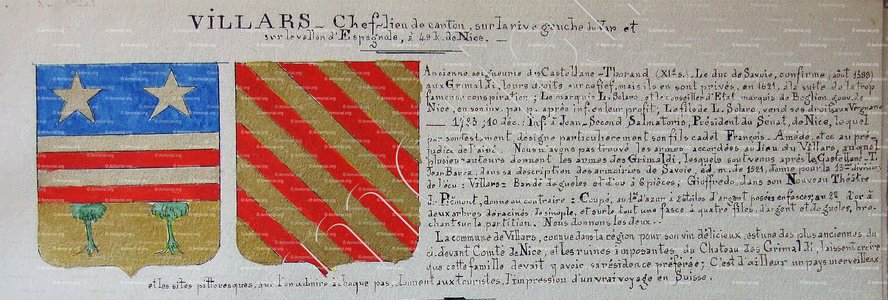 VILLARS - Chef-lieu de canton, sur la rive gauche du Var et
sur le vallon d'Espagnole, à 48 k. de Nice. —
Ancienne seigneurie des Castellane-Thorand (XIe s.). Le duc de Savoie, confirme, (août
aux Grimaldi, leurs droits sur ce fief, mais ils en sont privés, en 1621, à la suite de la trop
fameuse conspiration; Le marquis L. Solaro, et le conseiller d'Etat marquis de Boglion, gouv. de
Nice, en son inv. par p. après inf. en leur profit; Le fils de L. Solaro, vend ses droits aux
— 1723; 10 déc.: Inf. à Jean-Second Salmatoris, Président du Sénat, de Nice, lequel
par son test. ment désigne particulièrement son fils cadet François-Amédé, et ce au pré
judice de l'aîné. Nous n'avons pas trouvé les armes accordées au lieu du Villars, auquel
plusieurs auteurs donnent les armes des Grimaldi, lesquels sont venus après les Castellane-T.
Jean Barce, dans sa description des armoiries de Savoie, éd. m. de 1521, donne pour la 13me division
de l'écu: Villars: Bandé de gueles et d'or à 6 pièces; Gioffredo, dans son Nouveau Théâtre
Piémont, donne au contraire: Coupé, au 1er d'azor à 2 étoiles d'argent posées en fasces, au 2e d'or à
deux arbres déracinés de sinople, et sur le tout une fasce à quatre files, d'argent et de gueles, bro-
chant sur la partition. Nous donnons les deux.
La commune de Villars, connue dans la région pour son vin délicieux, est une des plus anciennes du
ci-devant Comté de Nice, et les ruines imposantes du Château des Grimaldi, laissent croire
que cette famille devait y avoir sa résidence préférée; C'est d'ailleur un pays merveilleux
et les sites pittoresques, que l'on admire à chaque pas, donnent aux touristes, l'impression d'un vrai voyage en Suisse.